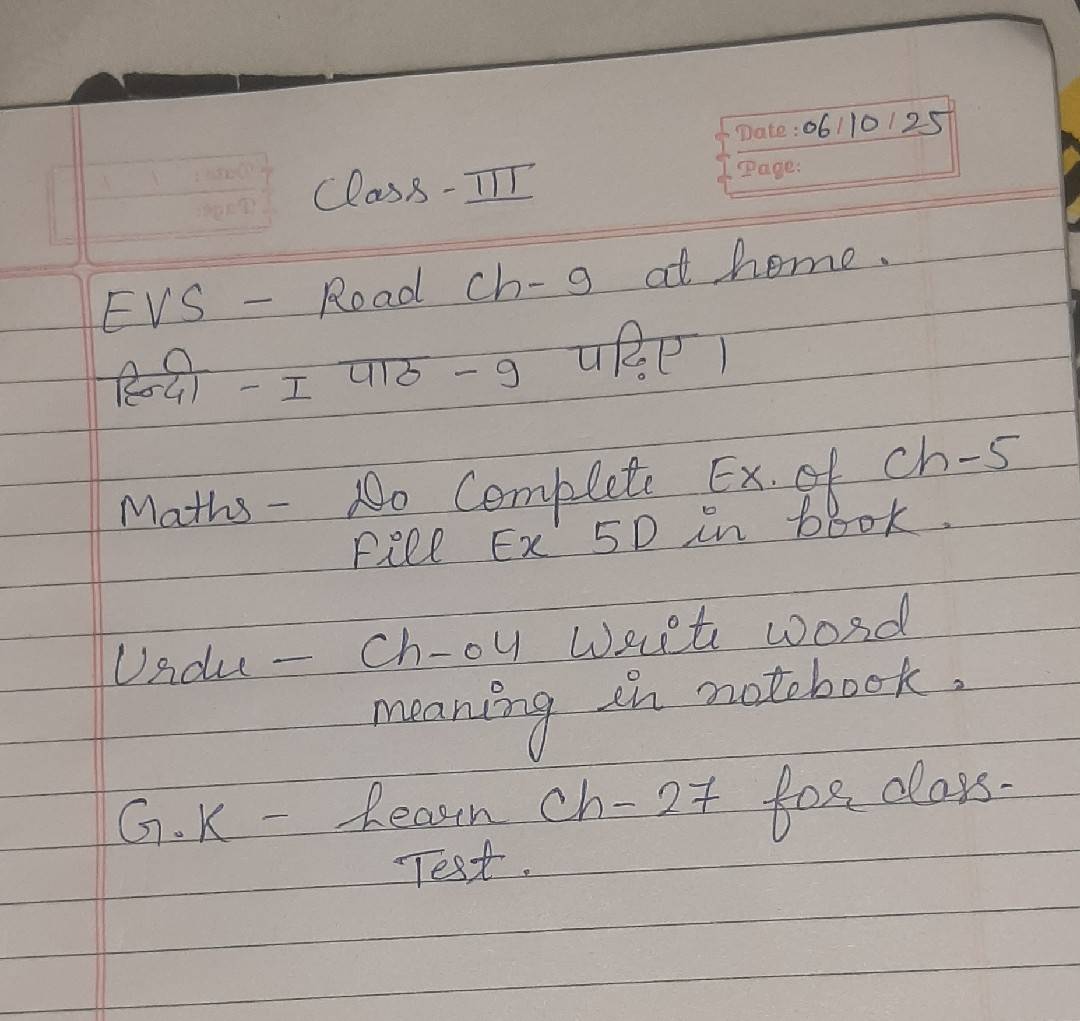 Date: 06/10/25
Page:
Class - III
EVS - Read Ch-9 at home.
हिन्दी - I पाठ - 9 पढ़िए।
Maths - Do Complete Ex. of Ch-5
Fill Ex 5D in book.
Urdu - Ch-04 Write word
meaning in notebook.
G.K - Learn Ch-27 for class-
Test.